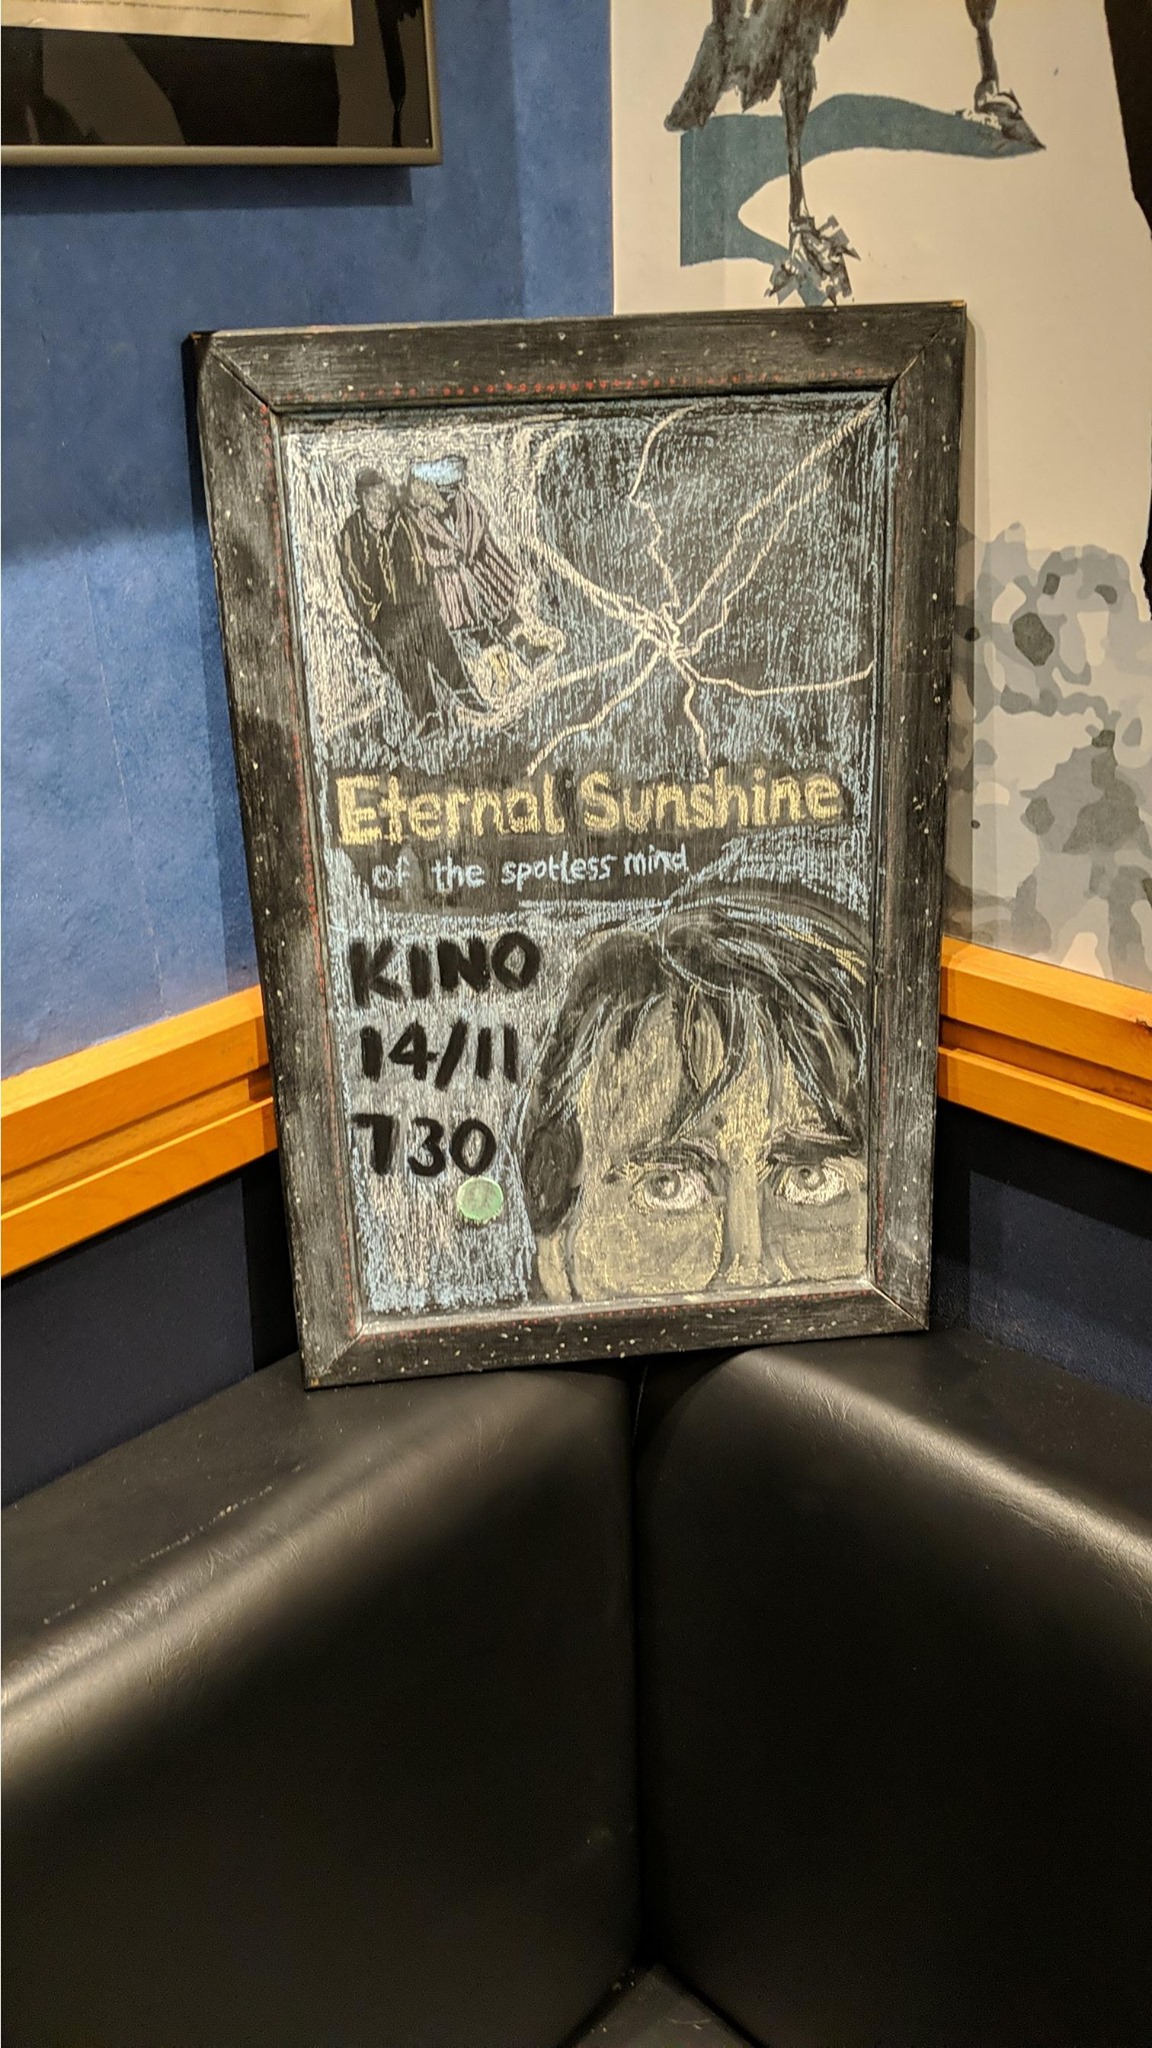 Eternal Sunshine
of the spotless mind
KINO
14/11
730